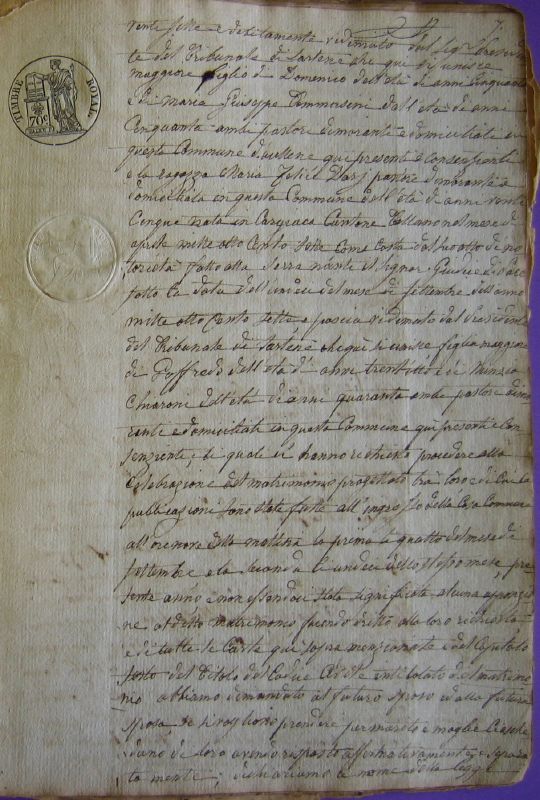 TIMBRE ROYAL
70c
7
vente sette e debitamente vidimato dal Sigr Presiden
te del Tribunale di Sartene che qui si unisce
maggiore figlio di Domenico dell'età di anni Cinquanta
e di Maria Giuseppe dell'età di anni
Cinquanta ambi pastori dimoranti e domiciliati in
questa Commune qui presenti e consenzienti
e la ragazza Maria Felice dimorante e
domiciliata in questa Commune dell'età di anni venti
Cinque nata in Cantone Tallano nel mese di
aprile mille otto Cento sette come costa dall'atto di no
torietà fatto alla Serra nante il Signor Giudice di Pace
sotto la data dell'undeci del mese di settembre dell'anno
mille otto Cento sette e poscia vidimato dal Presidente
del Tribunale di Sartene che qui si unisce figlia maggiore
di Goffredo dell'età di anni trent'otto e di Nunzia
Chiaroni dell'età di anni quaranta ambi pastori dimo
ranti e domiciliati in questa Commune qui presenti e con
senzienti, le quali ci hanno richiesto procedere alla
Celebrazione del matrimonio progettato tra loro e di cui le
pubblicazioni sono state fatte all'ingresso della Casa Commune
all'ore nove della mattina la prima li quattro del mese di
settembre e la seconda li undeci dello stesso mese, pre
sente anno e non essendoci stata significata alcuna opposizio
ne al detto matrimonio facendo dritto alla loro richiesta
e di tutte le Carte qui sopra menzionate e del Capitolo
sesto del Titolo del Codice Civile intitolato del matrimo
nio abbiamo dimandato al futuro sposo ed alla futura
sposa se vogliono prendere per marito e moglie Ciasche
duno di loro avendo risposto affermativamente e separa
ta mente; dichiariamo a nome della legge